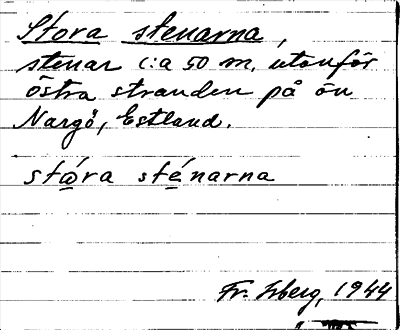 Stora stenarna,
stenar c:a 50 m. utanför
östra stranden på ön
Nargö, Estland.
stǻra sténarna
Fr. 1944